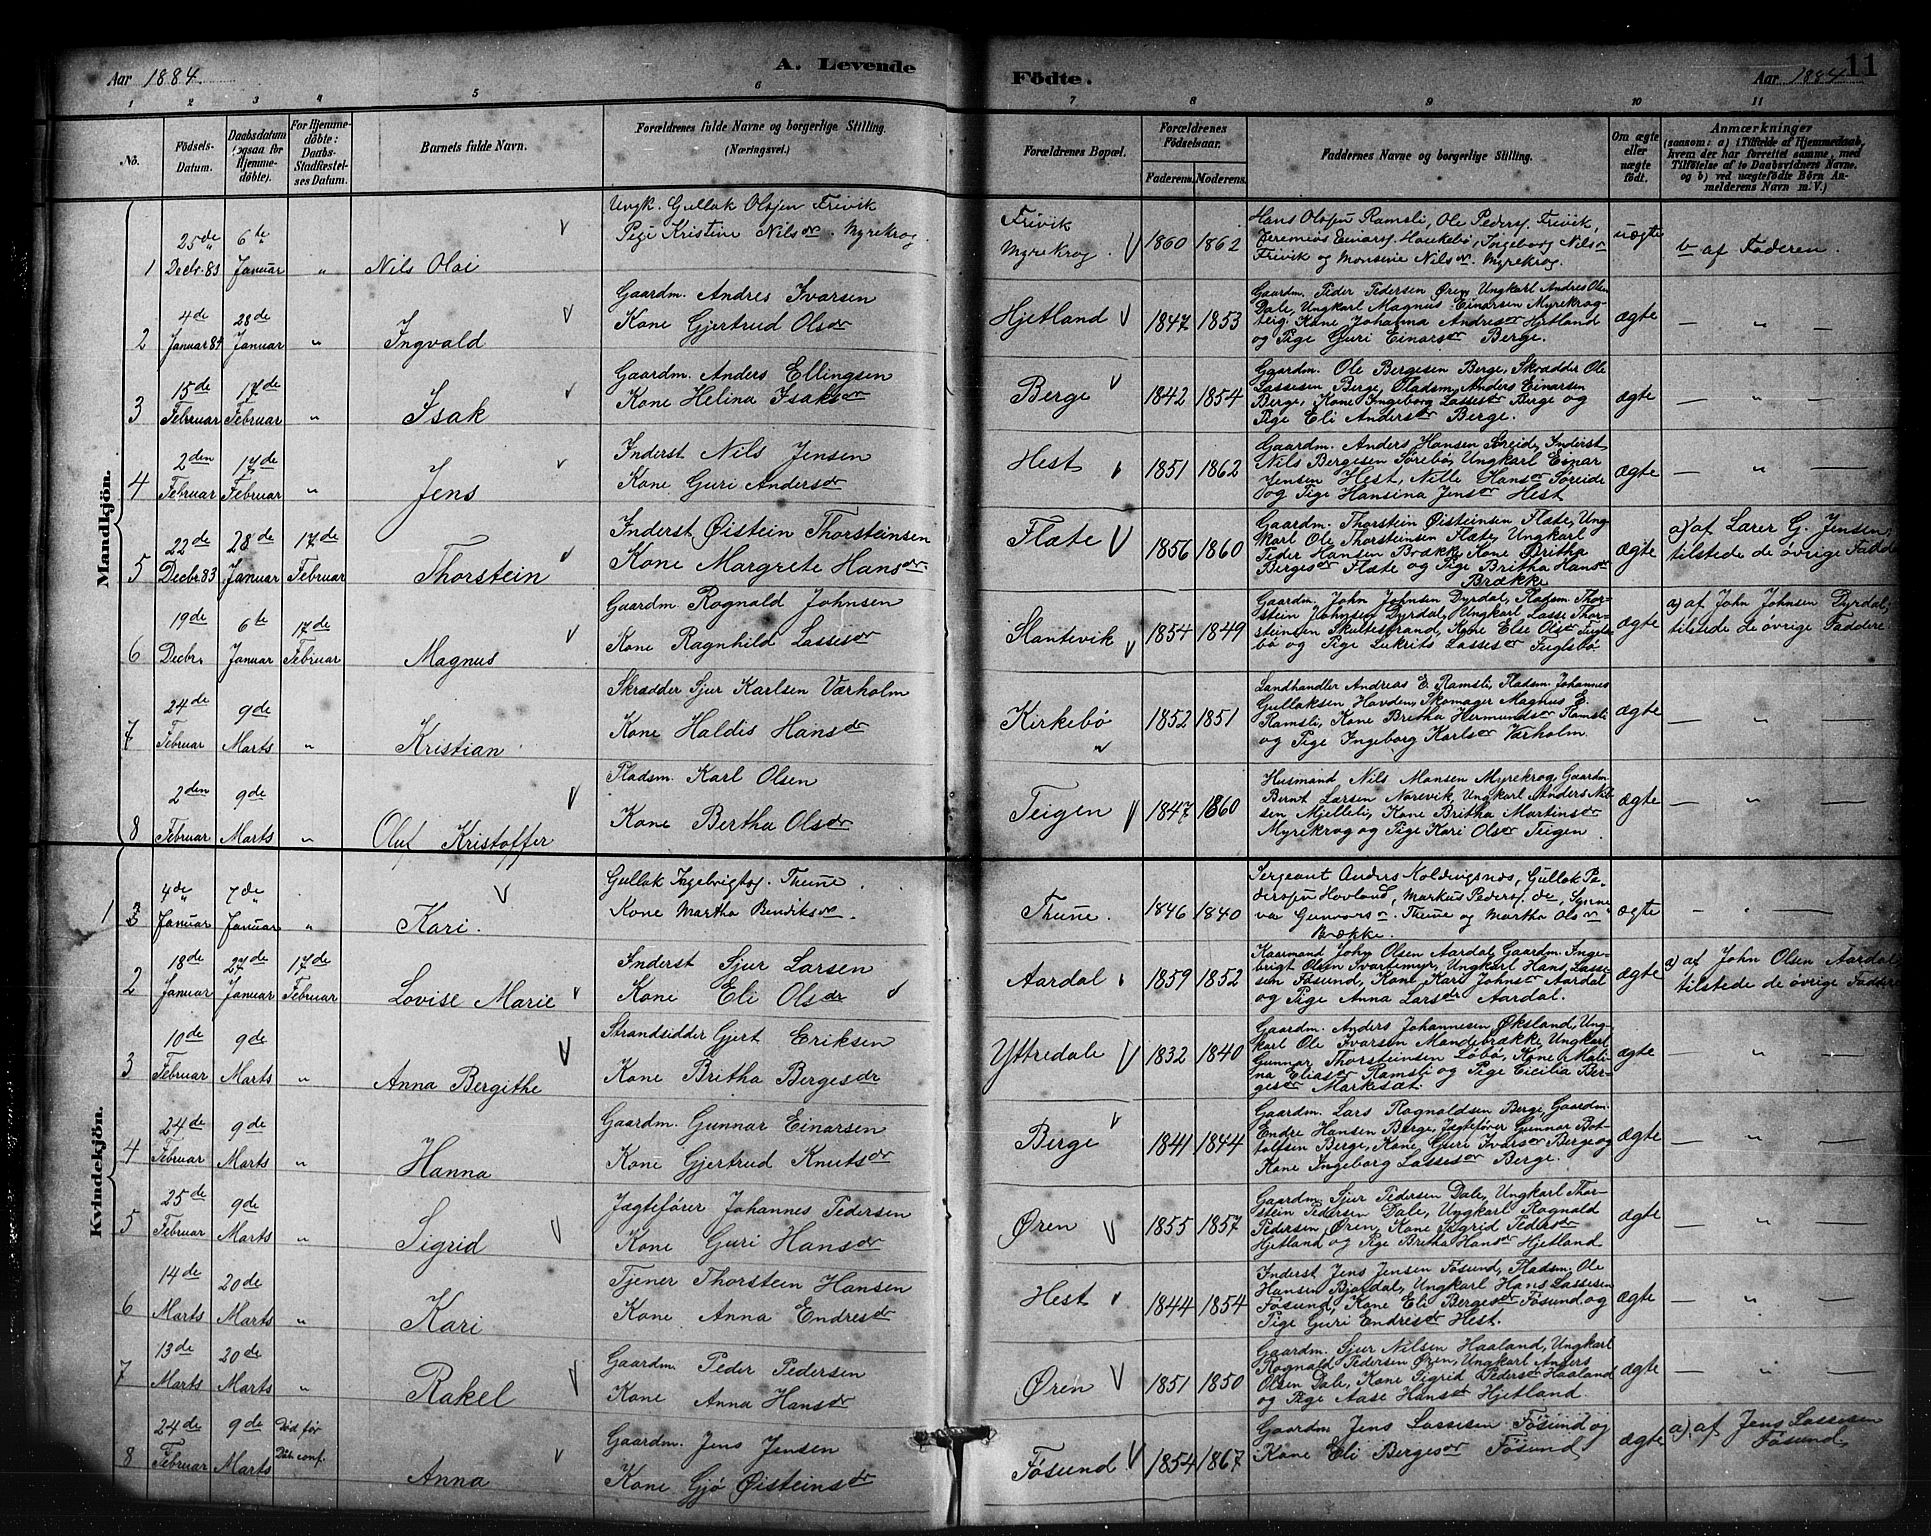 Aar 1884. A. Levende Födte. Aar 1884 11
1 2 3 4 5 6 7 8 9 10 11
No. Födsels-Datum. Daabsdatum (ogsaa for Hjemme-döbte). For Hjemme-döbte: Daabs-Stadfæstel-ses Datum. Barnets fulde Navn. Forældrenes fulde Navne og borgerlige Stilling. (Næringsvei.) Forældrenes Bopæl. Forældrenes Födselsaar. Faderens. Moderens. Faddernes Navne og borgerlige Stilling. Om ægte eller uægte födt. Anmærkninger
(saasom: a) i Tilfælde af Hjemmedaab,
hvem der har forrettet samme, med
Tilföielse af to Daabsvidners Navne.
og b) ved uægtefödte Börn An-
melderens Navn m. V.)
Mandkjön.
1 25de Decbr. 83 6te Januar " Nils Olai
Ungk. Gullak Olsen Frivik
Pige Kristine Nilsdr. Myrekrog
Frivik
Myrekrog 1860 1862
Hans Olsen Ramsli, Ole Peders. Frivik,
Jeremias Einars. Haukebö, Ingeborg Nilsdr
Frivik og Monserie Nilsdr. Myrekrog.
uægte b af Faderen.
2 4de Januar 84 28de Januar " Ingvald
Gaardm. Andres Ivarsen
Kone Gjertrud Olsdr
Hjetland 1847 1853
Gaardm. Peder Pedersen Øren, Ungkarl Andres Olsen
Dale, Ungkarl Magnus Einarsen Myrekrog-
teig, Kone Johanna Andresdr Hjetland
og Pige Guri Einarsdr Berge.
ægte — " —
3 15de Februar 17de Februar " Isak
Gaardm. Anders Ellingsen
Kone Helina Isaksdr
Berge 1842 1854
Gaardm. Ole Bergesen Berge, Skrædder Ole
Lassesen Berge, Pladsm. Anders Einarsen
Berge, Kone Ingeborg Lassesdr Berge og
Pige Eli Andersdr Berge.
ægte — " —
4 2den Februar 17de Februar " Jens
Inderst Nils Jensen
Kone Guri Andersdr
Hest 1851 1862
Gaardm. Anders Hansen Söreide, Inderst
Nils Bergesen Sörebö, Ungkarl Einar
Jensen Hest, Nille Hansdr Söreide
og Pige Hansina Jensdr Hest
ægte — " —
5 22de Decbr. 83 28de Januar 17de Februar Thorstein
Inderst Øistein Thorsteinsen
Kone Margrete Hansdr
Flæte 1856 1860
Gaardm. Thorstein Øisteinsen Flæte, Ung-
karl Ole Thorsteinsen Flæte, Ungkarl
Peder Hansen Brække, Kone Britha
Bergesdr Flæte og Pige Britha Hansdr
Brække
ægte a) af Lærer G. Jensen,
tilstede de övrige Faddere
6 19de Decbr. 6te Januar 17de Februar Magnus
Gaardm. Rognald Johnsen
Kone Ragnhild Lassesdr
Slantevik 1854 1849
Gaardm. John Johnsen Dyrdal, Pladsm. Thor-
stein Johnsen Dyrdal, Ungkarl Lasse Thor-
steinsen Skuttestrand, Kone Else Olsdr Fugls-
bö og Pige Lukrits Lassesdr Fuglsbö
ægte a) af John Johnsen Dyrdal,
tilstede de övrige Faddere
7 24de Februar 9de Marts " Kristian
Skrædder Sjur Karlsen Værholm
Kone Haldis Hansdr
Kirkebö 1852 1851
Landhandler Andreas E. Ramsli, Pladsm. Johannes
Gullaksen Havden, Skomager Magnus E.
Ramsli, Kone Britha Hermundsdr Ramsli
og Pige Ingeborg Karlsdr Værholm.
ægte — " —
8 2den Februar 9de Marts " Oluf Kristoffer
Pladsm. Karl Olsen
Kone Bertha Olsdr
Teigen 1847 1860
Husmand Nils Monsen Myrekrog, Gaardm.
Bernt Larsen Norevik, Ungkarl Anders Nil-
sen Mjelleli, Kone Britha Martinsdr
Myrekrog og Pige Kari Olsdr Teigen
ægte — " —
Kvindekjön.
1 4de Januar 7de Januar " Kari.
Gullak Thune.
Kone Martha Bendiksdr.
Thune. 1846 1840
Sergeant Anders Koldevigsnes, Gullak Pe-
dersen Hovland, Markus Peders. de, Synne-
va Gunvorsdr. Thune og Martha Olsdr
Brække.
ægte — " —
2 18de Januar 27de Januar 17de Februar Lovise Marie
Inderst Sjur Larsen
Kone Eli Olsdr
Aardal 1859 1852
Kaarmand John Olsen Aardal, Gaardm. Inge-
brigt Olsen Svartemyr, Ungkarl Hans Lasse-
sen Fösund, Kone Kari Johnsdr Aardal
og Pige Anna Larsdr Aardal.
ægte a) af John Olsen Aardal
tilstede de övrige Faddere
3 10de Februar 9de Marts " Anna Bergithe
Strandsidder Gjert Eriksen
Kone Britha Bergesdr
Yttredale 1832 1840
Gaardm. Anders Johannesen Øksland, Ung-
karl Ole Ivarsen Mandebrække, Ungkarl
Gunnar Thorsteinsen Löbö, Kone Mali-
na Eliasdr Ramsli og Pige Cicilia Ber-
gesdr Markesæt.
ægte — " —
4 24de Februar 9de Marts " Hanna
Gaardm. Gunnar Einarsen
Kone Gjertrud Knutsdr
Berge 1841 1844
Gaardm. Lars Rognaldsen Berge, Gaardm.
Endre Hansen Berge, Jægtefører Gunnar Bot-
tolfsen Berge, Kone Guri Ivarsdr Berge og
Kone Ingeborg Lassesdr Berge.
ægte — " —
5 25de Februar 9de Marts " Sigrid
Jægtefører Johannes Pedersen
Kone Guri Hansdr
Øren 1855 1857
Gaardm. Sjur Pedersen Dale, Ungkarl Thor-
stein Pedersen Dale, Ungkarl Rognald
Pedersen Øren, Kone Sigrid Pedersdr
Hjetland og Pige Britha Hansdr Hjetland
ægte — " —
6 14de Marts 20de Marts " Kari
Tjener Thorstein Hansen
Kone Anna Endresdr
Hest 1844 1854
Inderst Jens Jensen Fösund, Pladsm. Ole
Hansen Bjordal, Ungkarl Hans Lassesen
Fösund, Kone Eli Bergesdr Fösund og
Pige Guri Endresdr Hest.
ægte — " —
7 13de Marts 20de Marts " Rakel
Gaardm. Peder Pedersen
Kone Anna Hansdr
Øren 1851 1850
Gaardm. Sjur Nilsen Haaland, Ungkarl
Rognald Pedersen Øren, Ungkarl Anders
Olsen Dale, Kone Sigrid Pedersdr Haaland
og Pige Aase Hansdr Hjetland.
ægte — " —
8 24de Februar 9de Marts Död før Daab. conf. Anna
Gaardm. Jens Jensen
Kone Gjö Øisteinsdr
Fösund 1854 1867
Gaardm. Jens Lassesen Fösund og
Kone Eli Bergesdr Fösund
ægte a) af Jens Lassesen
Fösund,